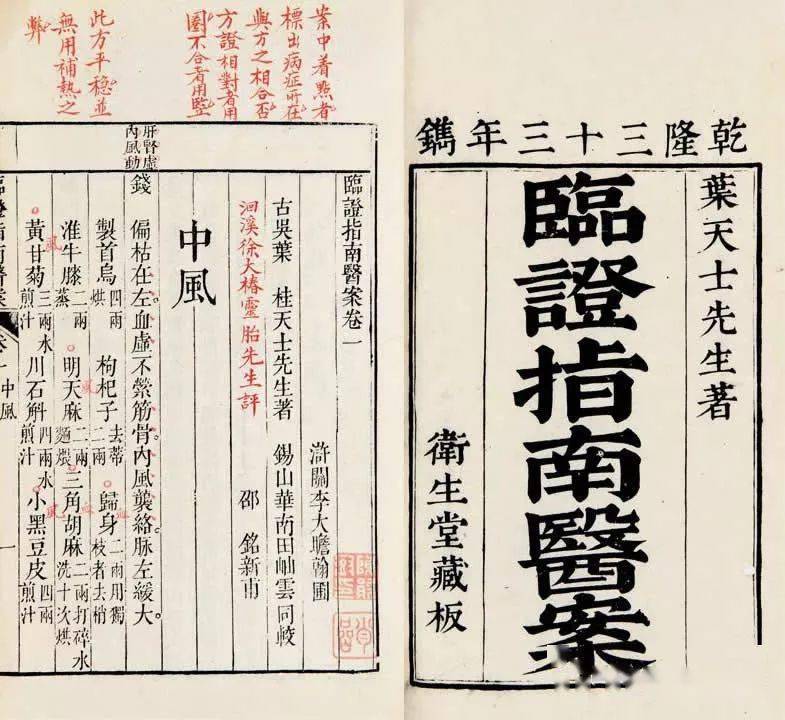 乾隆三十三年鐫
葉天士先生著
臨證指南醫案
衛生堂藏板
案中着點者
標出病症所在
與方之相合否
方證相對者用
圈不合者用豎
此方平穩並
無用補熱之
弊
臨證指南醫案卷一
滸關李大瞻翰圃
古吳葉 桂天士先生著 錫山華南田岫雲同較
邵 銘新甫
洄溪徐大椿靈胎先生評
中風
肝腎虛
內風動
錢 偏枯在左。血虛不縈筋骨。內風襲絡。脉左緩大。
製首烏四兩烘 枸杞子去蒂二兩 歸身二兩用獨枝者去梢
淮牛膝二兩蒸 明天麻二兩麵煨 三角胡麻二兩打碎水洗十次烘
黃甘菊三兩水煎汁 川石斛四兩水煎汁 小黑豆皮四兩煎汁
中風 一